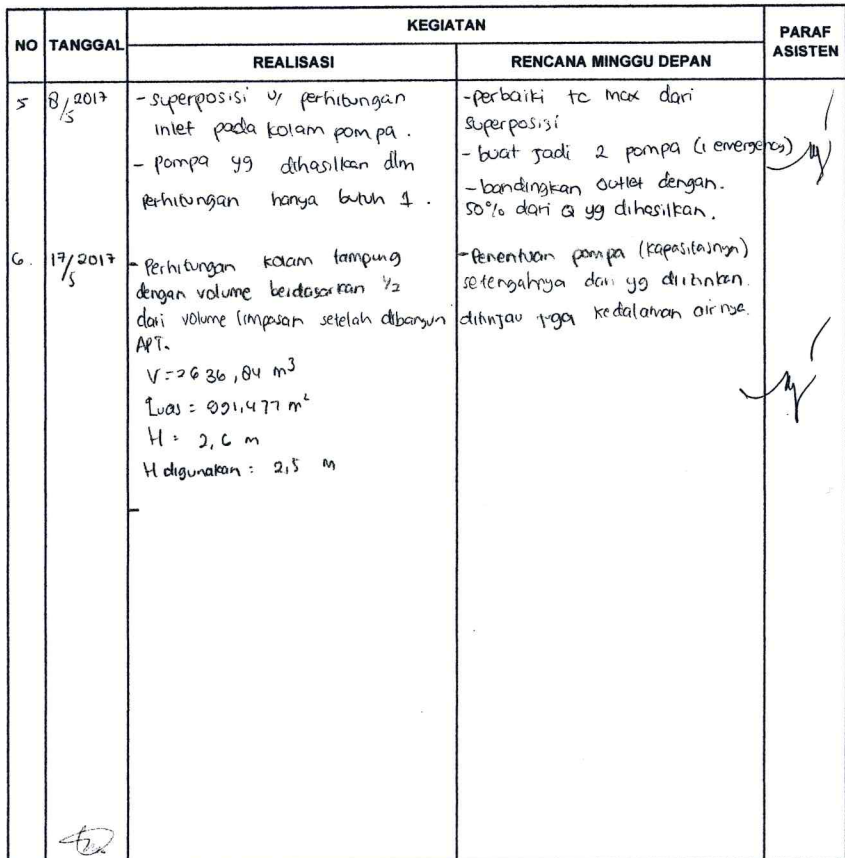 NO TANGGAL KEGIATAN PARAF ASISTEN
REALISASI RENCANA MINGGU DEPAN
5 8/5 2017
- superposisi u/ perhitungan
inlet pada kolam pompa.
- pompa yg dihasilkan dlm
perhitungan hanya butuh 1.
- perbaiki tc max dari
superposisi
- buat jadi 2 pompa (1 emergency)
- bandingkan outlet dengan.
50% dari Q yg dihasilkan.
6. 17/5 2017
- Perhitungan kolam tampung
dengan volume berdasarkan 1/2
dari volume limpasan setelah dibangun
APT.
V = 2636,84 m³
Luas = 991,477 m²
H = 2,6 m
H digunakan = 2,5 m
-
- Penentuan pompa (kapasitasnya)
setengahnya dari yg diizinkan.
ditinjau juga kedalaman airnya.